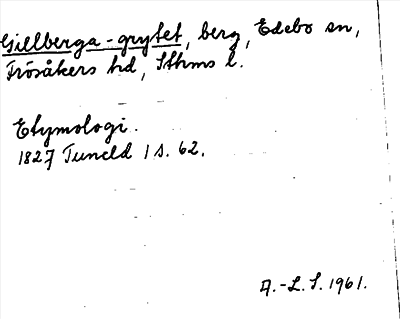 Gillberga-grytet, berg, Edebo sn,
Frösåkers hd, Sthms l.
Etymologi.
1827 Tuneld 1 s. 62.
A.-L. S. 1961.